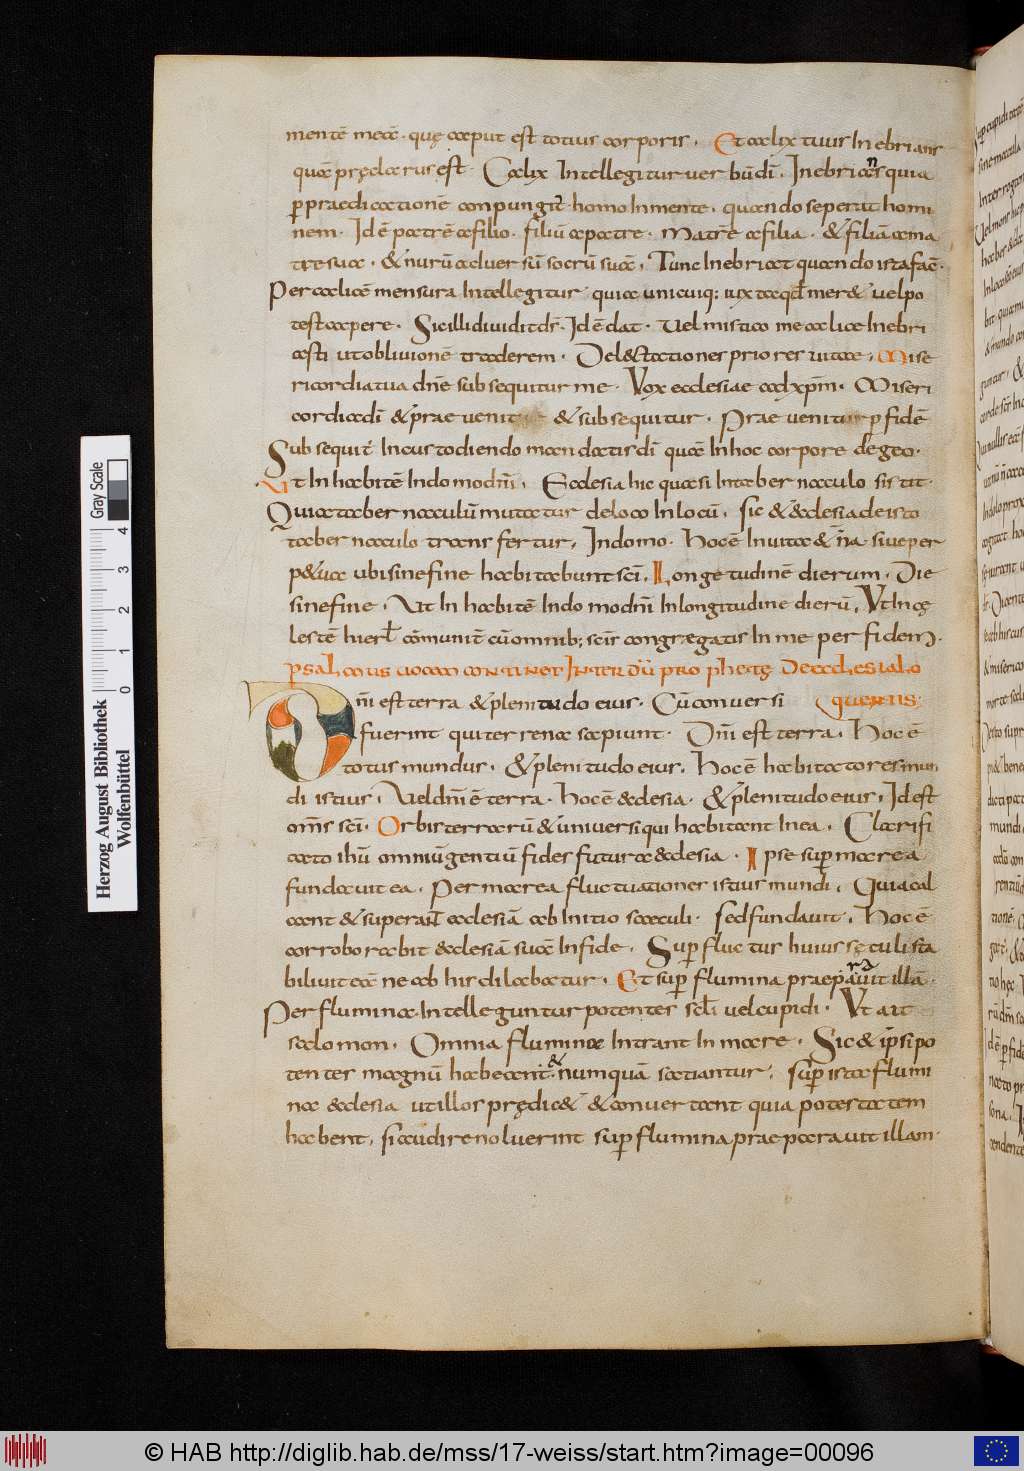 mentē meā. quę caput est totius corporis. Et calix tuus Inebrians
quā pręclarus est. Calix Intellegitur verbū dī. Inebrians quia
p praedicationē conpungit homo In mente. quando seperat homi
nem. Id ē patrē a filio. filiū a patre. Matrē a filia. & filiā a ma
tre sua. & nurū adversū socrū suā. Tunc Inebriat quando ista fac̄.
Per calicē mensura Intellegitur quia unicuiq; iuxta qd mer& vel po
test capere. Sic illi dividit dr̄. Id ē dat. Vel mistico me calice Inebri
asti ut oblivionē traderem. Del&tationes priores vitae. Mise
ricordia tua dn̄e subsequitur me. Vox ecclesiae ad xp̄m. Miseri
cordia dī & praevenit & subsequitur. Praevenitur p fidē
Subsequit In custodiendo mandatis dī quā In hoc corpore dego.
Ut In habitē In domo dn̄i. Ecclesia hic quasi In tabernaculo sistit.
Quia tabernaculū mutatur de loco In locū. sic & &clesia de isto
tabernaculo transfertur. In domo. Hoc ē In vita &n̄a sive per
p&ua ubi sine fine habitabunt sc̄i. Longetudinē dierum. Die
sine fine. Ut In habitē In domo dn̄i In longitudine dierū. Ut In cę
lestē hierl̄ cōmunit cū omnib; scis congregatis In me per fidem.
psalmus vocem continet Inter dū prophetę De ecclesia lo
quentis:
Dn̄i est terra & plenitudo eius. Cū conversi
fuerint qui terrena sapiunt. Dn̄i est terra. Hoc ē
totus mundus. & plenitudo eius. Hoc ē habitatores mun
di istius. Vel dn̄i ē terra. Hoc ē &clesia. & plenitudo eius. Id est
om̄s sc̄i. Orbis terrarū & universi qui habitant In ea. Clarifi
cato ihū omniū gentiū fides futura &clesia. Ipse sup marea
fundavit ea. Per marea fluctuationes istius mundi. Quia cal
cant & superant ecclesiā ab Initio saeculi. sed fundavit. Hoc ē
corroborabit &clesiā suā In fide. Sup fluctur huius sęculi sta
bilivit eā ne ab his dilabatur. Et sup flumina praeparavit illā.
Per flumina Intelleguntur potentes scl̄i vel cupidi. Ut ait
salomon. Omnia flumina Intrant In mare. Sic & ipsi po
tentes magnū habeant. & numquā satiantur. sup ista flumi
na &clesia ut illos prędic& & convertant quia potestatem
habent. si audire noluerint sup flumina praeparavit illam.
Gray Scale
0 1 2 3 4
Herzog August Bibliothek
Wolfenbüttel
© HAB http://diglib.hab.de/mss/17-weiss/start.htm?image=00096